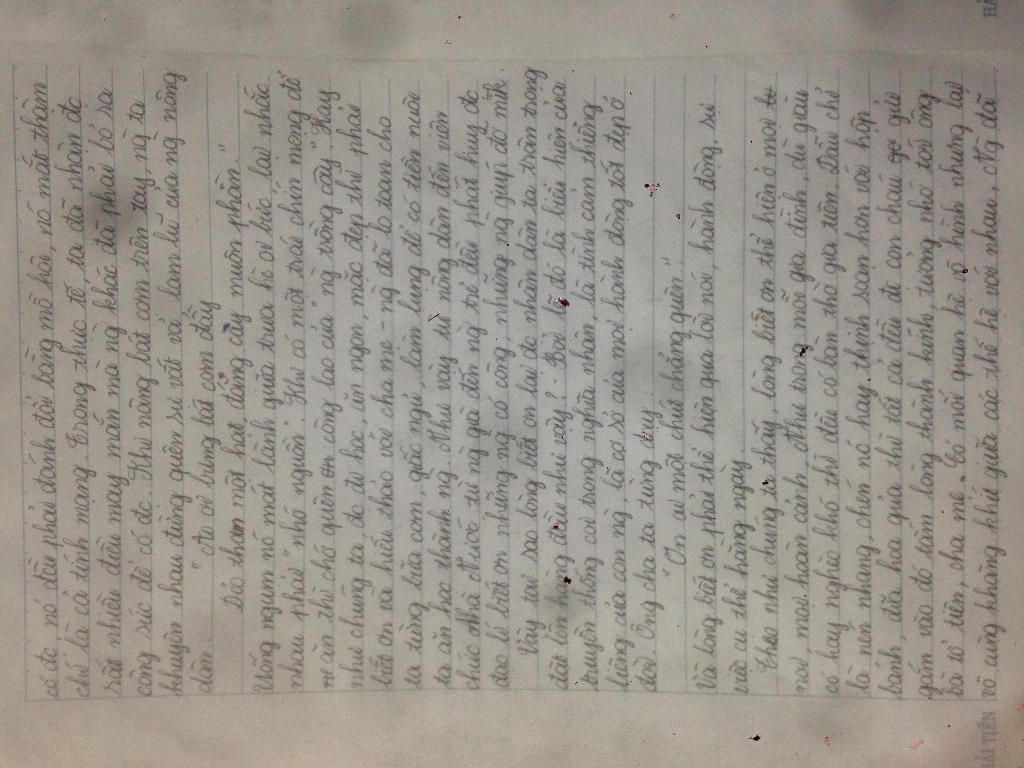 có đc, nó đều phải đánh đổi bằng mồ hôi, nó mắt thậm
chí là cả tính mạng. Trong thực tế ta đã nhận đc
rất nhiều điều may mắn mà ng khác đã phải bỏ ra
công sức để có đc. Khi nâng bát cơm trên tay, ng ta
khuyên nhau đừng quên sự vất vả lam lũ của ng nông
dân.
"Ai ơi bưng bát cơm đầy
Dẻo thơm một hạt đắng cay muôn phần."
Uống ngụm nó mát lành quả trưa hè oi bức lại nhắc
nhau phải "nhớ nguồn". Khi có một trái chín mọng để
ăn thì chớ quên công lao của "ng trồng cây". Hay
như chúng ta, đc đi học, ăn ngon, mặc đẹp thì phải
biết ơn và hiếu thảo với cha mẹ - ng đã lo toan cho
ta từng bữa cơm, giấc ngủ, làm lụng để có tiền nuôi
ta ăn học thành ng. Như vậy từ nông dân đến viên
chức Nhà Nước từ ng già đến ng trẻ đều phát huy đc
đạo lí biết ơn những ng có công, những ng giúp đỡ mìh
Vậy tại sao lòng biết ơn lại đc nhân dân ta trân trọng
đặt lên hàng đầu như vậy? - Bởi lẽ đó là biểu hiện của
truyền thống coi trọng nghĩa nhân, là tình cảm thiêng
liêng của con ng, là cơ sở của mọi hành động tốt đẹp ở
đời. Ông cha ta từng dạy:
"Ơn ai một chút chẳng quên".
Và lòng biết ơn phải thể hiện qua lời nói, hành động, sự
việc cụ thể hàng ngày.
Theo như chúng ta thấy, lòng biết ơn thể hiện ở mọi
nơi, mọi hoàn cảnh. Như trong mỗi gia đình, dù giàu
có hay nghèo khó thì đều có bàn thờ gia tiên. Dẫu chỉ
là nén nhang, chén nó hay thịnh soạn hơn với hộp
bánh, đĩa hoa quả thì tất cả đều để con cháu gửi
gắm vào đó tấm lòng thành kính, tưởng nhớ tới ông
bà tổ tiên, cha mẹ. Có mối quan hệ vô hình nhưng lại
vô cùng khăng khít giữa các thế hệ với nhau. Ng đã
HẢI TIẾN